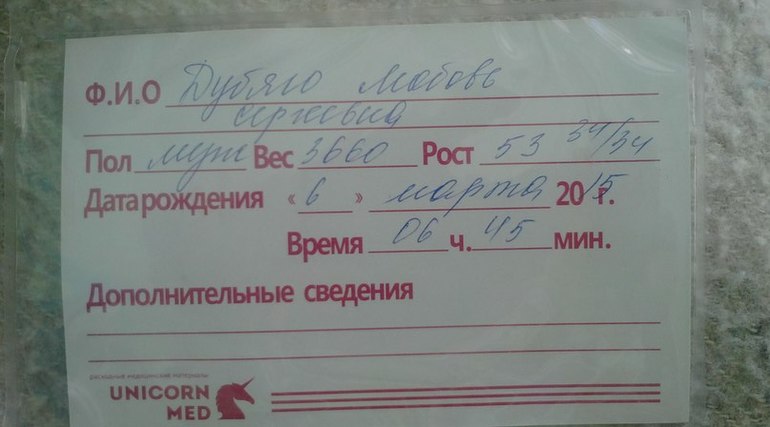 Ф.И.О Дубяго Любовь
Сергеевна
Пол муж Вес 3660 Рост 53 34/34
Дата рождения «6» марта 2015г.
Время 06 ч. 45 мин.
Дополнительные сведения
расходные медицинские материалы
UNICORN
MED